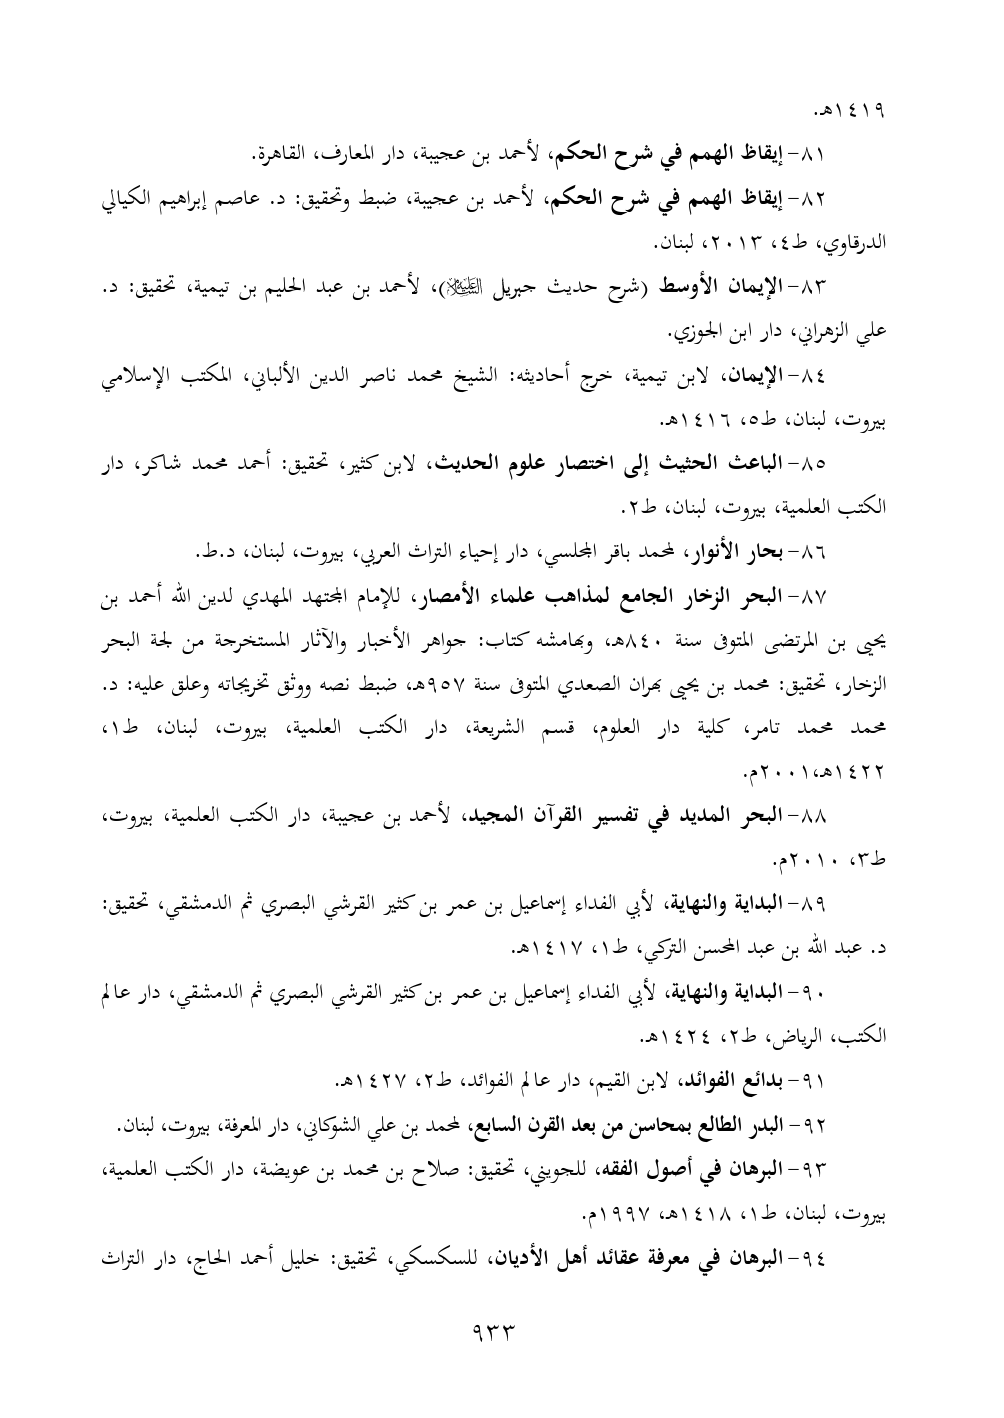 ١٤١٩هـ.
٨١- إيقاظ الهمم في شرح الحكم، لأحمد بن عجيبة، دار المعارف، القاهرة.
٨٢- إيقاظ الهمم في شرح الحكم، لأحمد بن عجيبة، ضبط وتحقيق: د. عاصم إبراهيم الكيالي
الدرقاوي، ط٤، ٢٠١٣، لبنان.
٨٣- الإيمان الأوسط (شرح حديث جبريل عليه السلام)، لأحمد بن عبد الحليم بن تيمية، تحقيق: د.
علي الزهراني، دار ابن الجوزي.
٨٤- الإيمان، لابن تيمية، خرج أحاديثه: الشيخ محمد ناصر الدين الألباني، المكتب الإسلامي
بيروت، لبنان، ط٥، ١٤١٦هـ.
٨٥- الباعث الحثيث إلى اختصار علوم الحديث، لابن كثير، تحقيق: أحمد محمد شاكر، دار
الكتب العلمية، بيروت، لبنان، ط٢.
٨٦- بحار الأنوار، لمحمد باقر المجلسي، دار إحياء التراث العربي، بيروت، لبنان، د.ط.
٨٧- البحر الزخار الجامع لمذاهب علماء الأمصار، للإمام المجتهد المهدي لدين الله أحمد بن
يحيى بن المرتضى المتوفى سنة ٨٤٠هـ، وبهامشه كتاب: جواهر الأخبار والآثار المستخرجة من لجة البحر
الزخار، تحقيق: محمد بن يحيى بهران الصعدي المتوفى سنة ٩٥٧هـ، ضبط نصه ووثق تخريجاته وعلق عليه: د.
محمد محمد تامر، كلية دار العلوم، قسم الشريعة، دار الكتب العلمية، بيروت، لبنان، ط١،
١٤٢٢هـ،٢٠٠١م.
٨٨- البحر المديد في تفسير القرآن المجيد، لأحمد بن عجيبة، دار الكتب العلمية، بيروت،
ط٣، ٢٠١٠م.
٨٩- البداية والنهاية، لأبي الفداء إسماعيل بن عمر بن كثير القرشي البصري ثم الدمشقي، تحقيق:
د. عبد الله بن عبد المحسن التركي، ط١، ١٤١٧هـ.
٩٠- البداية والنهاية، لأبي الفداء إسماعيل بن عمر بن كثير القرشي البصري ثم الدمشقي، دار عالم
الكتب، الرياض، ط٢، ١٤٢٤هـ.
٩١- بدائع الفوائد، لابن القيم، دار عالم الفوائد، ط٢، ١٤٢٧هـ.
٩٢- البدر الطالع بمحاسن من بعد القرن السابع، لمحمد بن علي الشوكاني، دار المعرفة، بيروت، لبنان.
٩٣- البرهان في أصول الفقه، للجويني، تحقيق: صلاح بن محمد بن عويضة، دار الكتب العلمية،
بيروت، لبنان، ط١، ١٤١٨هـ، ١٩٩٧م.
٩٤- البرهان في معرفة عقائد أهل الأديان، للسكسكي، تحقيق: خليل أحمد الحاج، دار التراث
٩٣٣